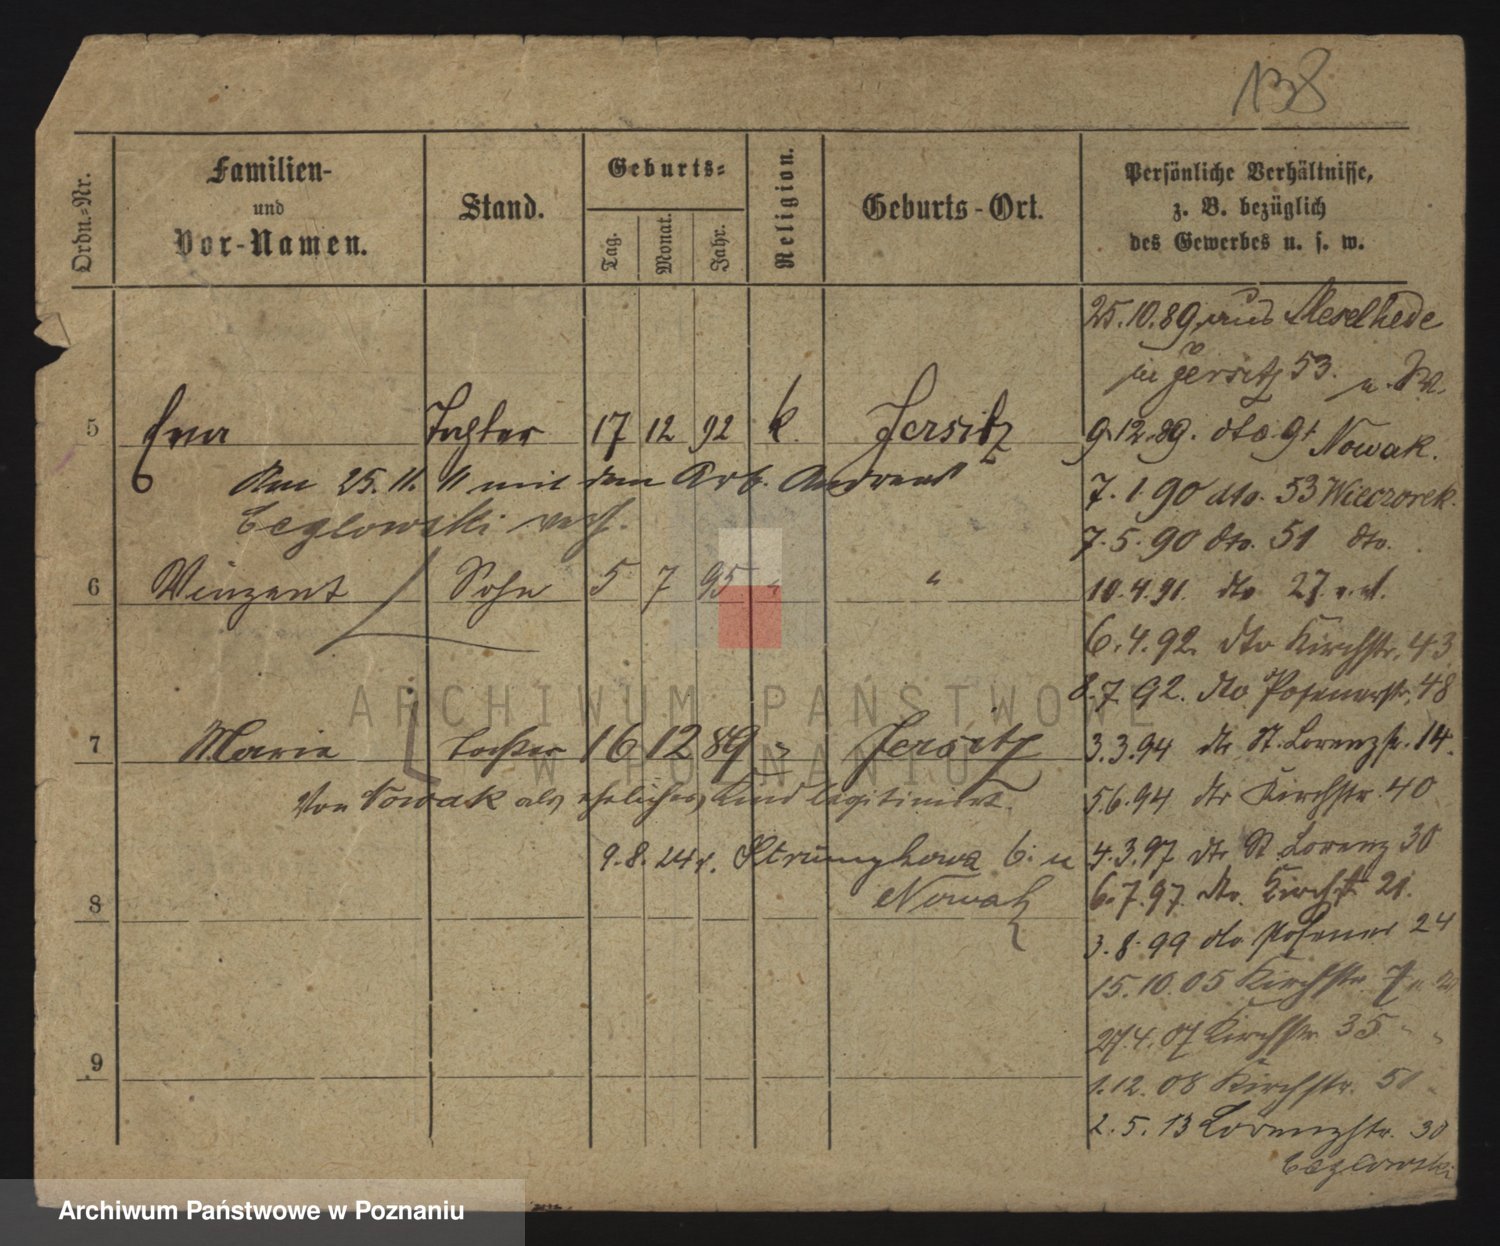 138
Ordn.-Nr.
Familien-
und
Vor-Namen.
Stand.
Geburts-
Tag.
Monat.
Jahr.
Religion.
Geburts-Ort.
Persönliche Verhältnisse,
z. B. bezüglich
des Gewerbes u. s. w.
5 Eva Tochter 17 12 92 k. Jersitz
Am 25.11. 11 mit dem Arb. Andreas
Ceglowski verh.
6 Vinzent Sohn 5 7 95 " "
7 Marie Tochter 16 12 89 " Jersitz
Von Nowak als eheliches Kind legitimiert.
9.8.24 v. b. u
8 Nowak
9
25.10.89 aus
in Jersitz 53.
9.12.89. dto. 91 Nowak.
7.1.90 dto. 53 Wieczorek.
7.5.90 dto. 51 dto.
10.4.91. dto 27
6.4.92. dto Kirchstr. 43
8.7.92. dto Posenerstr. 48
3.3.94 dto St. Lorenzstr. 14.
5.6.94 dto Kirchstr. 40
4.3.97 dto St Lorenz 30
6.7.97 dto. Kirchstr 21.
3.8.99 dto Posener 24
15.10.05 Kirchstr. 7
27.4.07 Kirchstr. 35 " "
1.12.08 Kirchstr. 51 "
2.5.13 Lorenzstr. 30
Ceglowski
ARCHIWUM PAŃSTWOWE
W POZNANIU
Archiwum Państwowe w Poznaniu